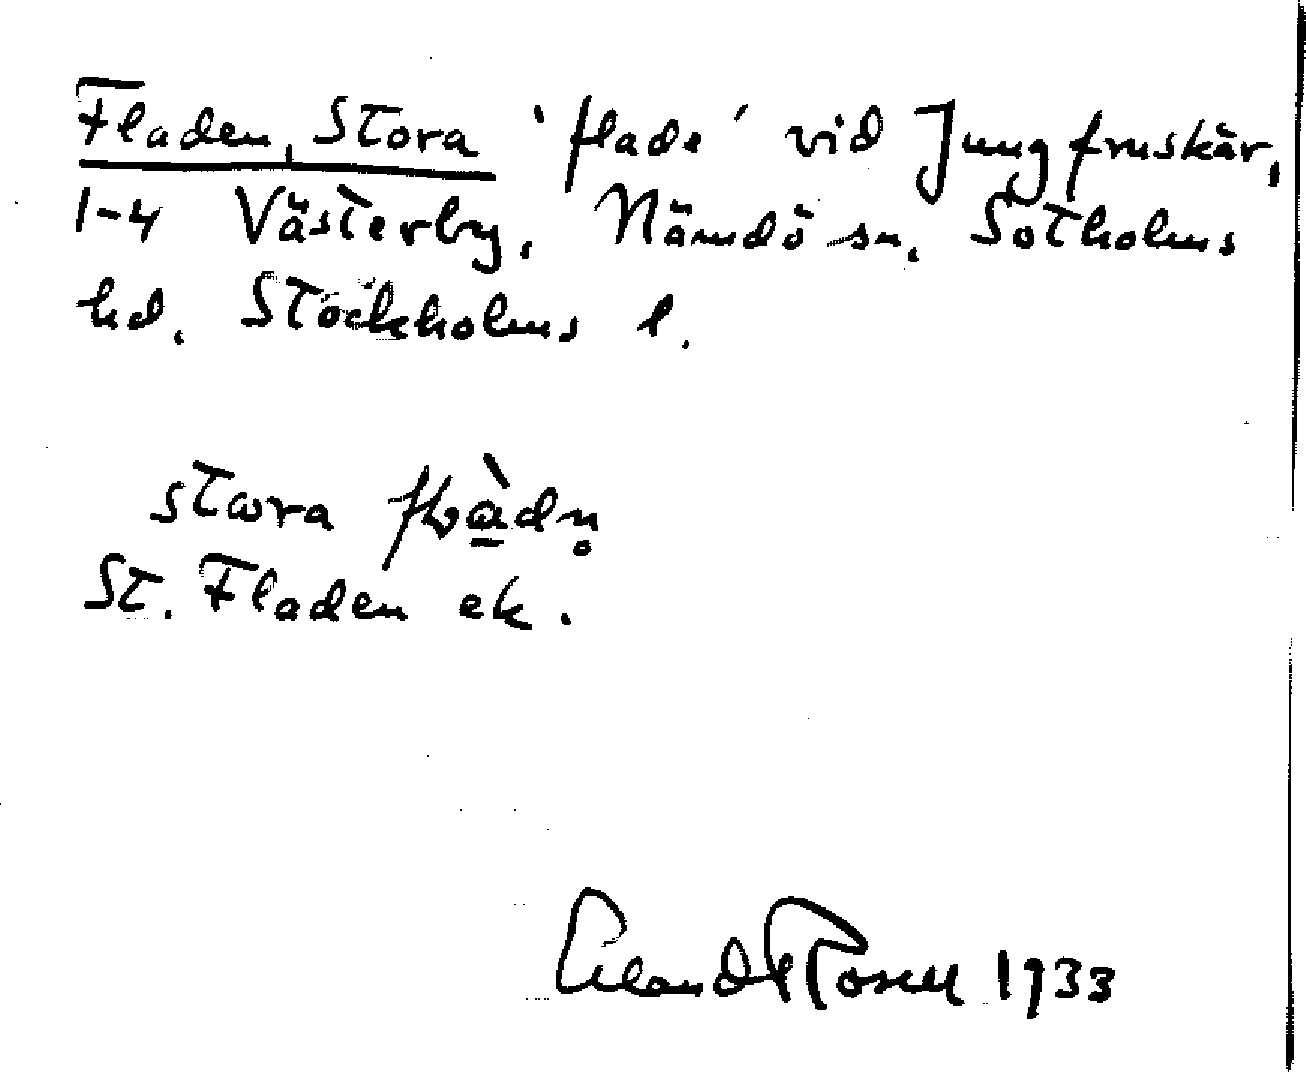 Fladen, Stora 'flade' vid Jungfruskär,
1-4 Västerby, Nämdö sn, Sotholms
hd, Stockholms l.
stωra flàdn̥
St. Fladen ek.
Erland Rosell 1933